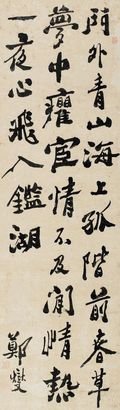 門外青山海上孤階前春草
夢中癯宦情不及閒情熱
一夜心飛入鑑湖
鄭燮